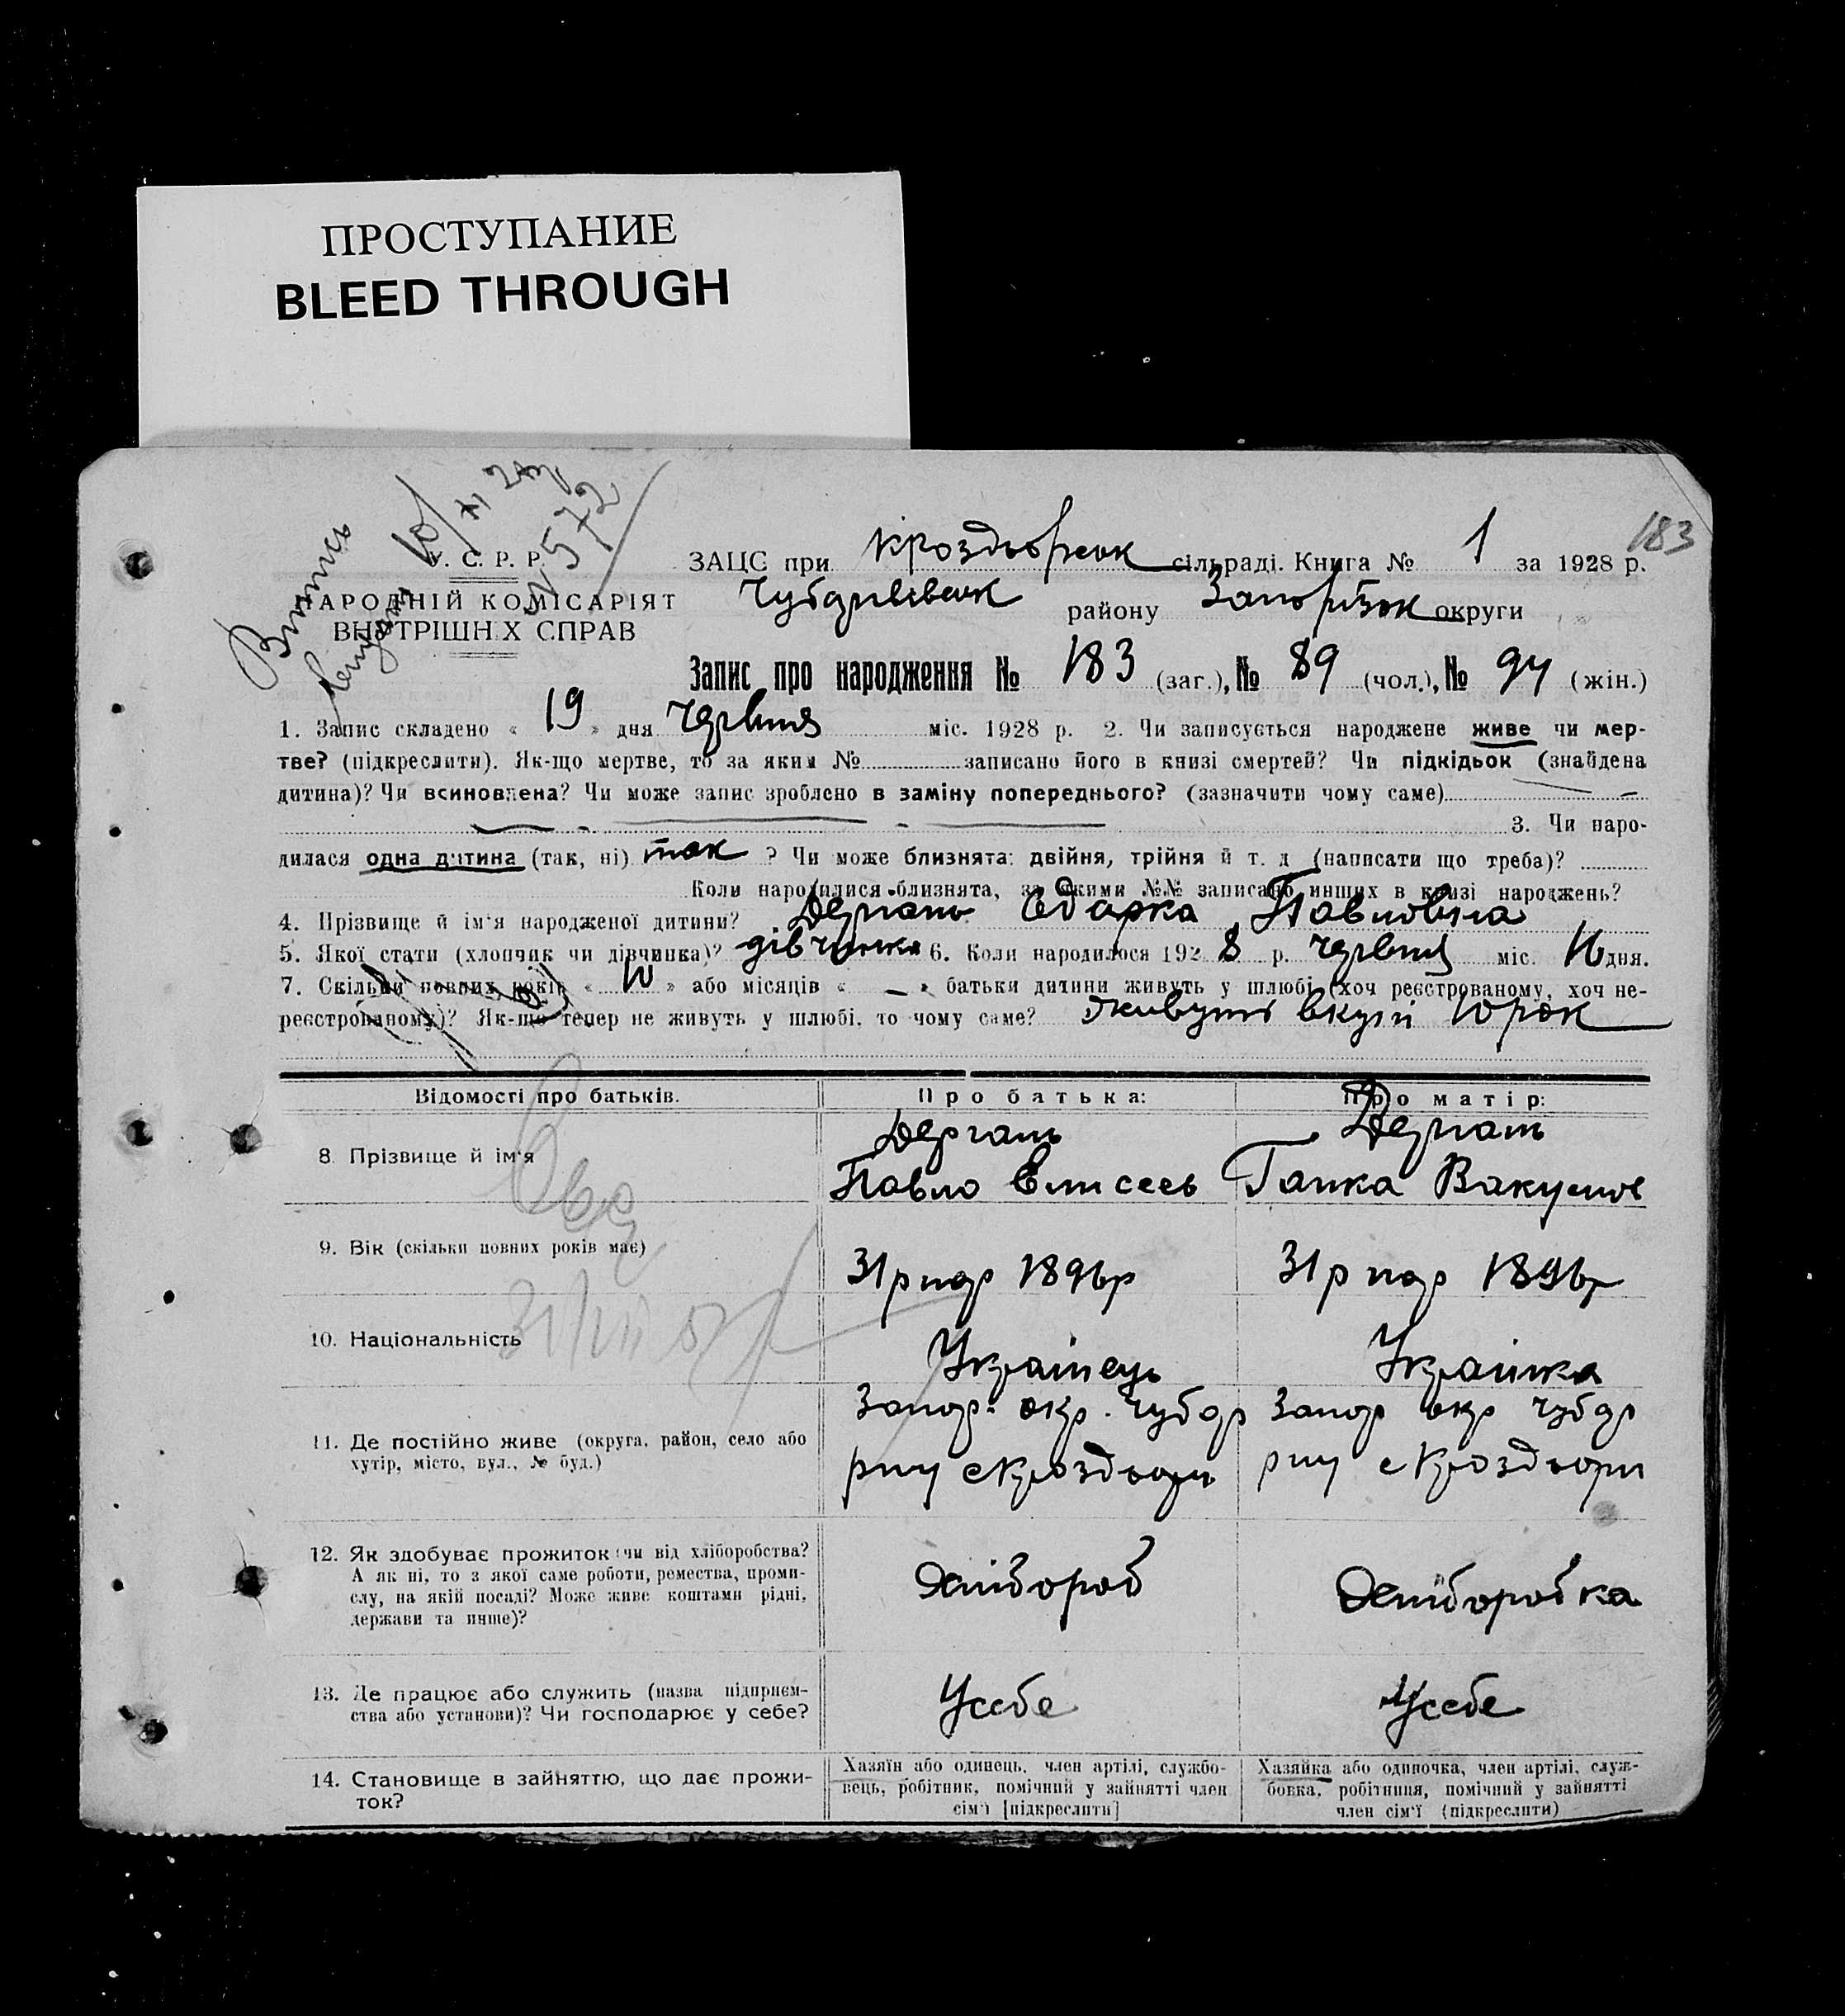 ПРОСТУПАНИЕ
BLEED THROUGH
183
У. С. Р. Р.
НАРОДНІЙ КОМІСАРІЯТ
ВНУТРІШНІХ СПРАВ
Випись
10/XI
№ 572
ЗАЦС при сільраді. Книга № 1 за 1928 р.
району Запорізьк округи
Запис про народження № 183 (заг.), № 89 (чол.), № 94 (жін.)
1. Запис складено « 19 » дня червня міс. 1928 р. 2. Чи записується народжене живе чи мер-
тве? (підкреслити). Як-що мертве, то за яким № записано його в книзі смертей? Чи підкідьок (знайдена
дитина)? Чи всиновлена? Чи може запис зроблено в заміну попереднього? (зазначити чому саме)
3. Чи наро-
дилася одна дитина (так, ні) так ? Чи може близнята: двійня, трійня й т. д (написати що треба)?
Коли народилися близнята, за якими №№ записано инших в книзі народжень?
4. Прізвище й ім'я народженої дитини? Дергаль Одарка Павловна
5. Якої стати (хлопчик чи дівчинка)? дівчинка 6. Коли народилося 192 8 р. червня міс. 16 дня.
7. Скільки повних років « 10 » або місяців « — » батьки дитини живуть у шлюбі (хоч реєстрованому, хоч не-
реєстрованому)? Як-що тепер не живуть у шлюбі, то чому саме? живуть вкупі 10 рок
Відомості про батьків.
Про батька:
Про матір:
8. Прізвище й ім'я
Дергаль
Павло Елисеев
Дергаль
Ганка Вакулов
9. Вік (скільки повних років має)
31 р нар 1896 р
31 р нар 1896 р
10. Національність
Українець
Українка
11. Де постійно живе (округа, район, село або
хутір, місто, вул., № буд.)
Запор. окр. Чубар
рну с Кроздвори
Запор окр Чубар
рну с Кроздвори
12. Як здобуває прожиток (чи від хліборобства?
А як ні, то з якої саме роботи, ремества, проми-
слу, на якій посаді? Може живе коштами рідні,
держави та инше)?
Хлібороб
Хліборобка
13. Де працює або служить (назва підприєм-
ства або установи)? Чи господарює у себе?
Усебе
Усебе
14. Становище в зайняттю, що дає прожи-
ток?
Хазяїн або одинець, член артілі, службо-
вець, робітник, помічний у зайнятті член
сім'ї [підкреслити]
Хазяйка або одиночка, член артілі, служ-
бовка, робітниця, помічний у зайнятті
член сім'ї (підкреслити)